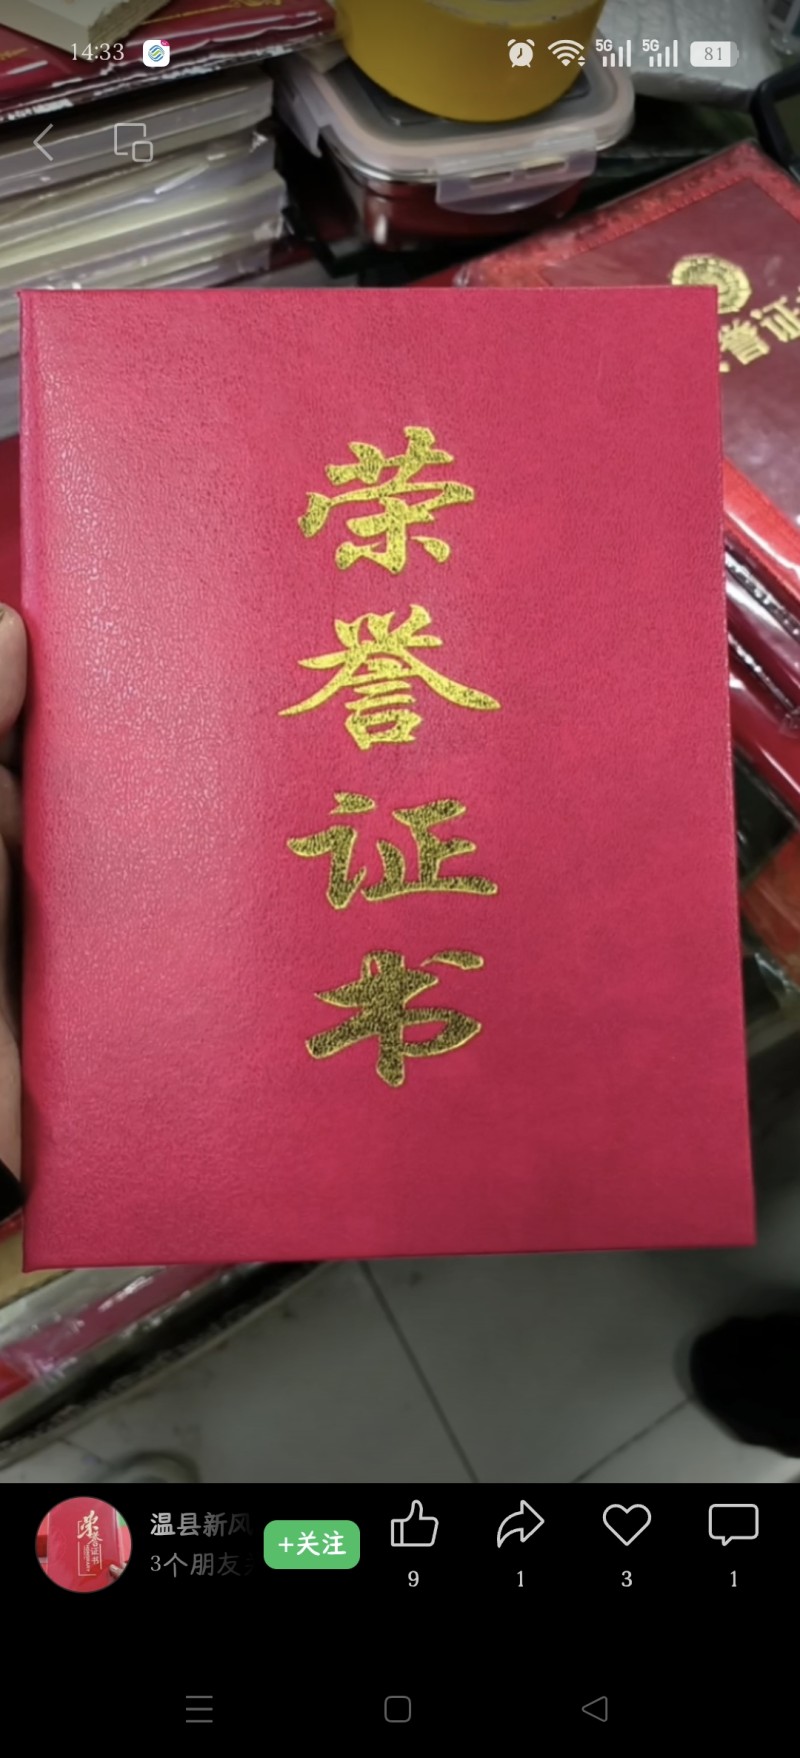 14:33
5G
5G
81
誉证
荣
誉
证
书
荣誉证书
温县新风
3个朋友关
+关注
9
1
3
1